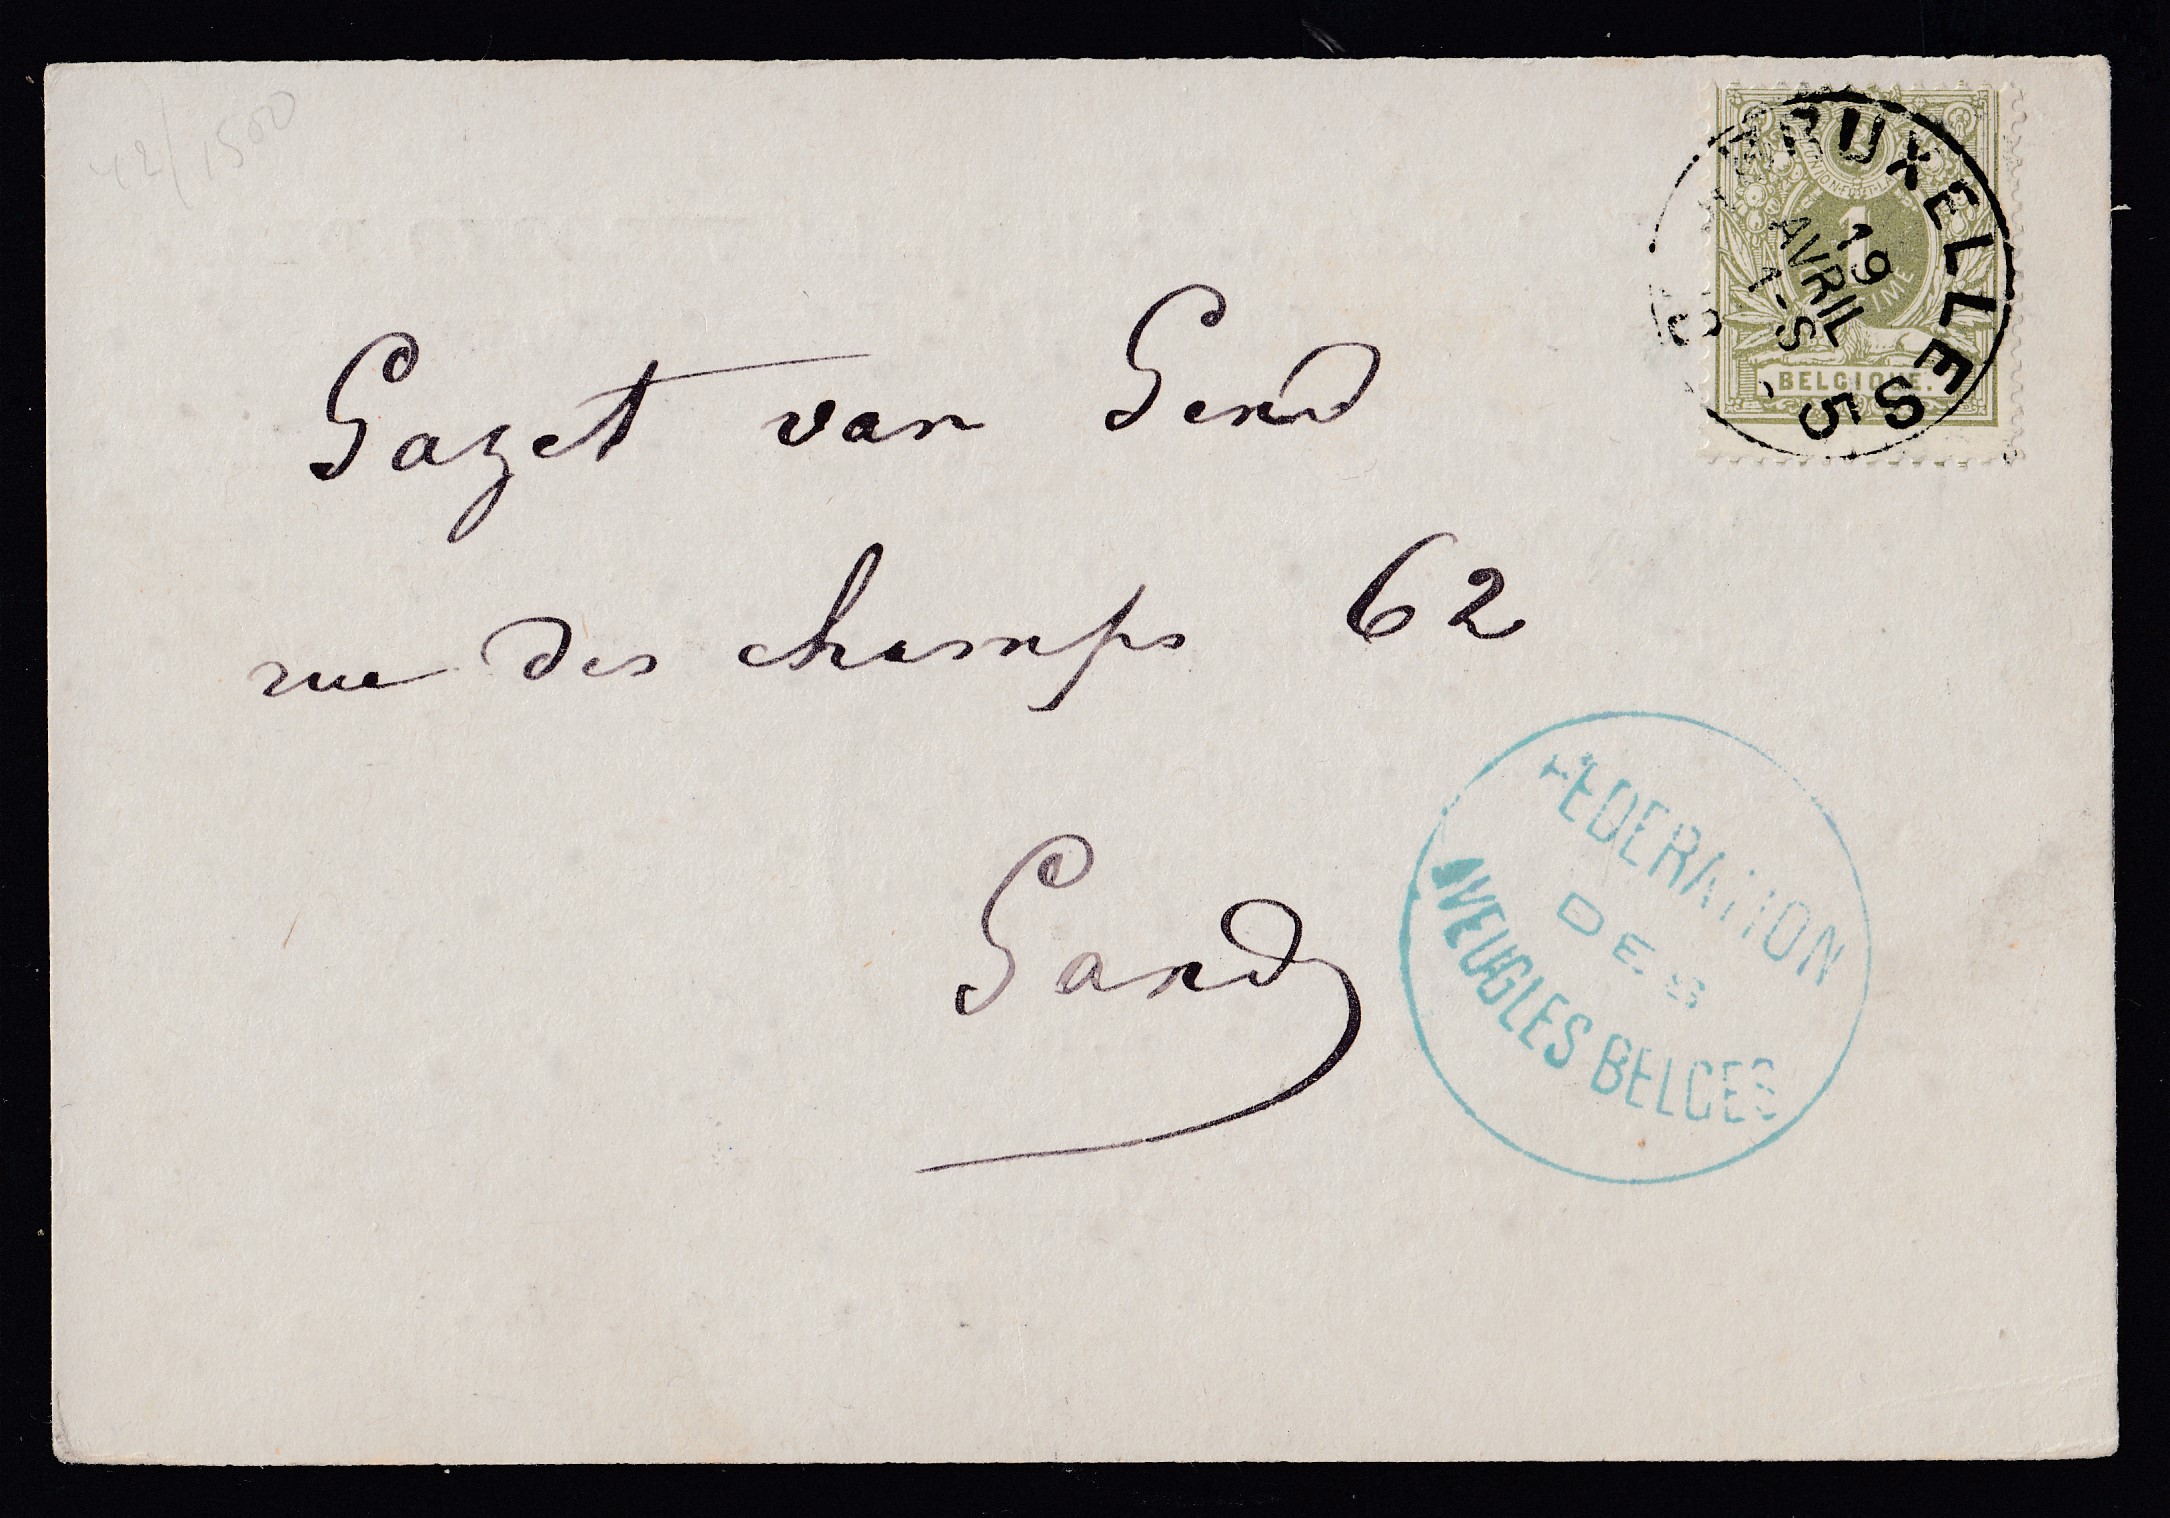 42/1500
BRUXELLES 5
19
AVRIL
1-S
1
BELGIQUE.
Gazet van Gend
rue des champs 62
Gand
FÉDERATION
DES
AVEUGLES BELGES